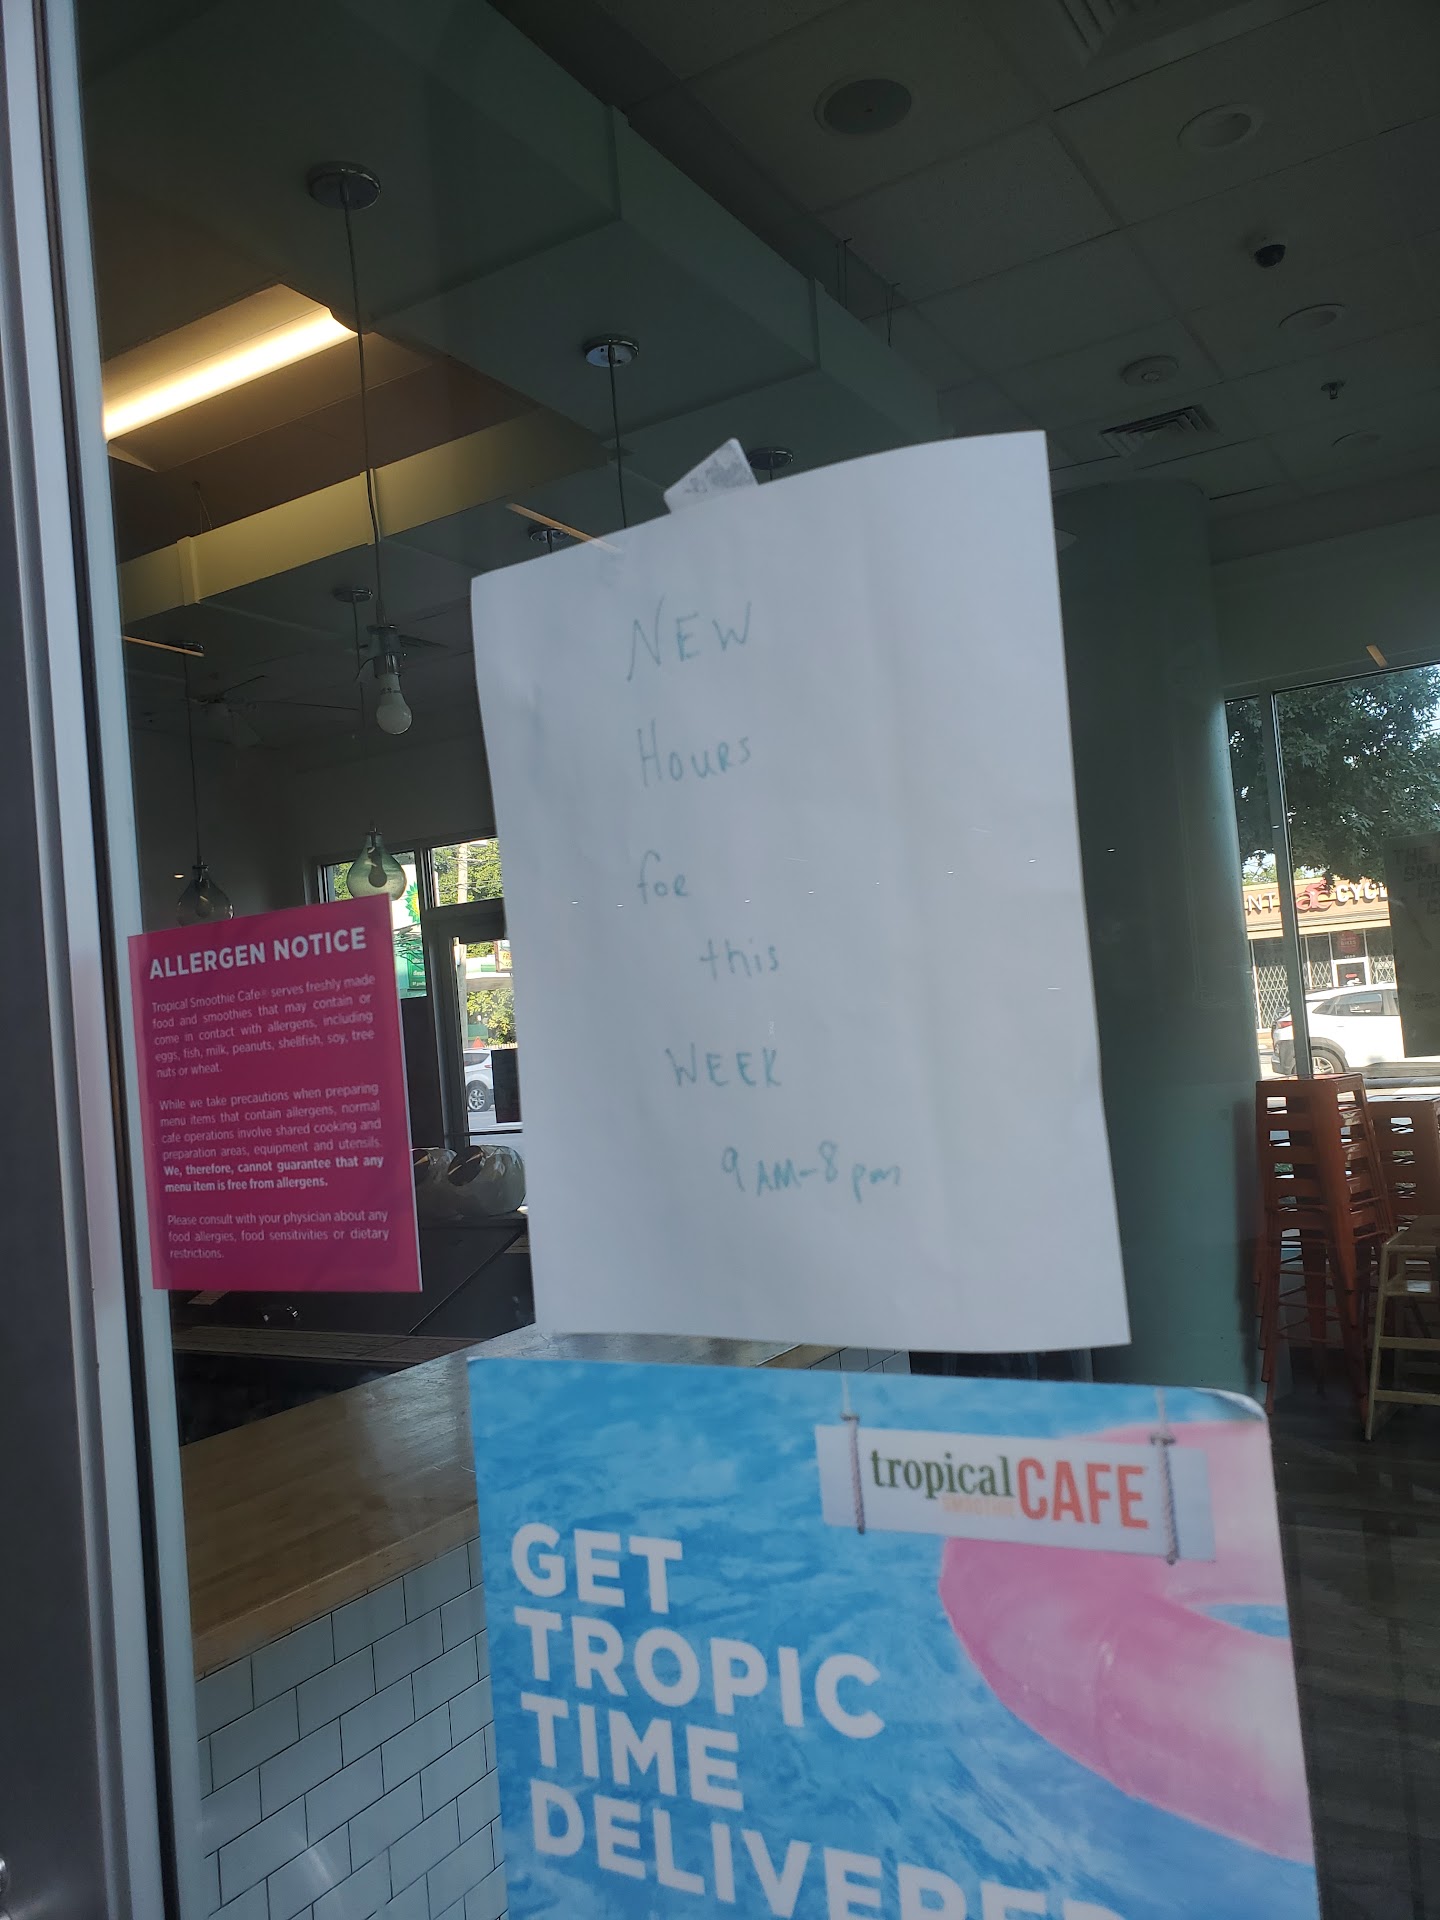 NEW
Hours
for
this
WEEK
9 AM-8 pm
ALLERGEN NOTICE
Tropical Smoothie Cafe® serves freshly made
food and smoothies that may contain or
come in contact with allergens, including
eggs, fish, milk, peanuts, shellfish, soy, tree
nuts or wheat.
While we take precautions when preparing
menu items that contain allergens, normal
cafe operations involve shared cooking and
preparation areas, equipment and utensils.
We, therefore, cannot guarantee that any
menu item is free from allergens.
Please consult with your physician about any
food allergies, food sensitivities or dietary
restrictions.
tropical CAFE
SMOOTHIE
GET
TROPIC
TIME
DELIVERED